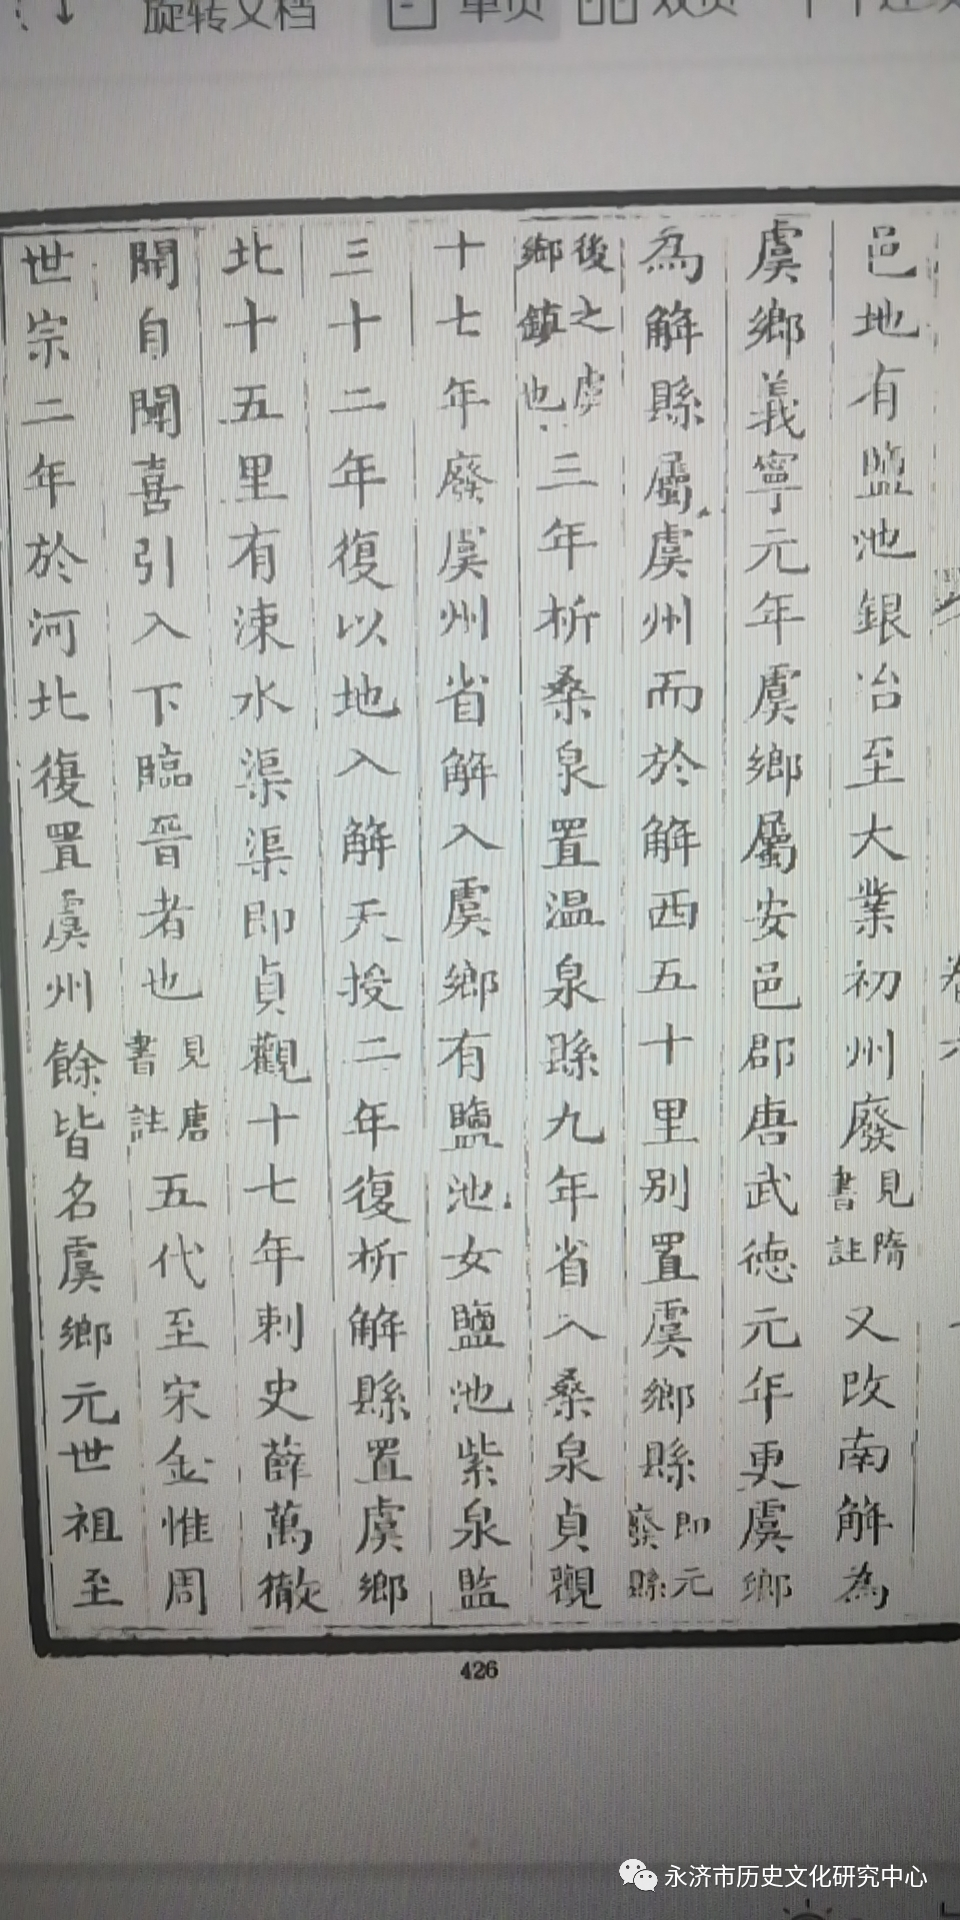 旋转文档 单页 双页
邑地有監池銀冶至大業初州廢見隋書註又改南解為
虞鄉義寧元年虞鄉屬安邑郡唐武德元年更虞鄉
為解縣屬虞州而於解西五十里別置虞鄉縣即元廢縣
後之虞鄉鎮也三年析桑泉置温泉縣九年省入桑泉貞觀
十七年廢虞州省解入虞鄉有鹽池女鹽池紫泉監
三十二年復以地入解天授二年復析解縣置虞鄉
北十五里有涑水渠渠即貞觀十七年刺史薛萬徹
開自聞喜引入下臨晉者也見唐書註五代至宋金惟周
世宗二年於河北復置虞州餘皆名虞鄉元世祖至
426
永济市历史文化研究中心